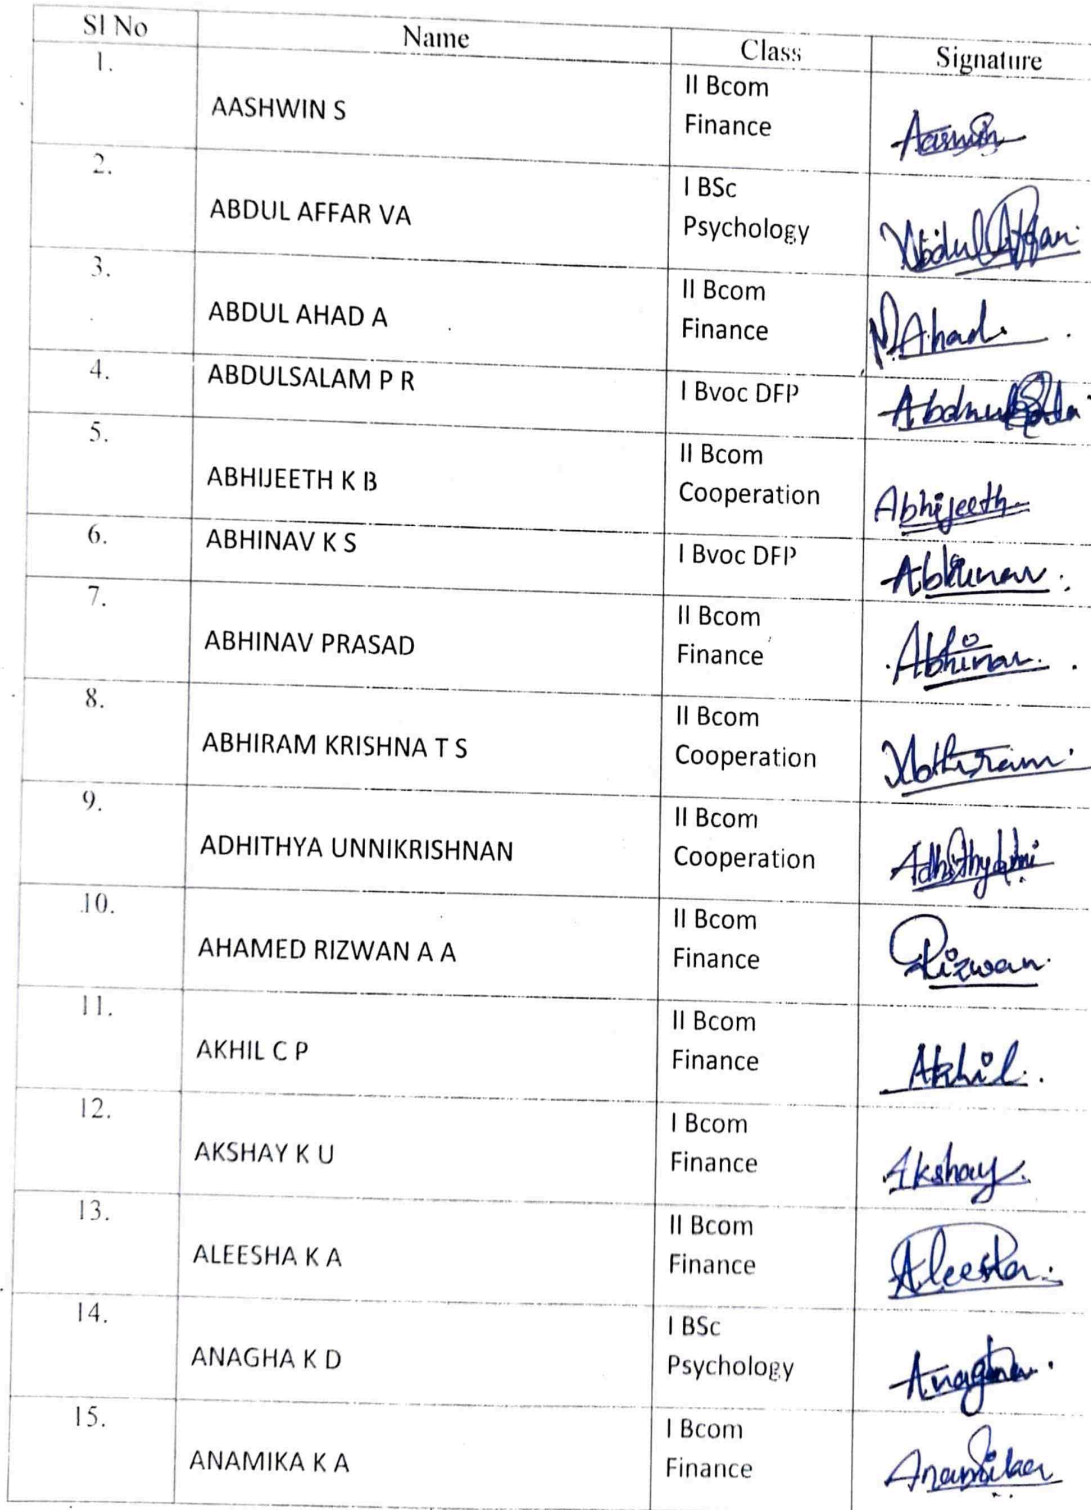 Sl No Name Class Signature
1. AASHWIN S II Bcom
Finance Aashwin
2. ABDUL AFFAR VA I BSc
Psychology Abdul Affar
3. ABDUL AHAD A II Bcom
Finance Ahad
4. ABDULSALAM P R I Bvoc DFP
5. ABHIJEETH K B II Bcom
Cooperation Abhijeeth
6. ABHINAV K S I Bvoc DFP Abhinav
7. ABHINAV PRASAD II Bcom
Finance Abhinav
8. ABHIRAM KRISHNA T S II Bcom
Cooperation Abhiram
9. ADHITHYA UNNIKRISHNAN II Bcom
Cooperation
10. AHAMED RIZWAN A A II Bcom
Finance Rizwan
11. AKHIL C P II Bcom
Finance Akhil
12. AKSHAY K U I Bcom
Finance Akshay
13. ALEESHA K A II Bcom
Finance Aleesha
14. ANAGHA K D I BSc
Psychology Anagha
15. ANAMIKA K A I Bcom
Finance Anamika